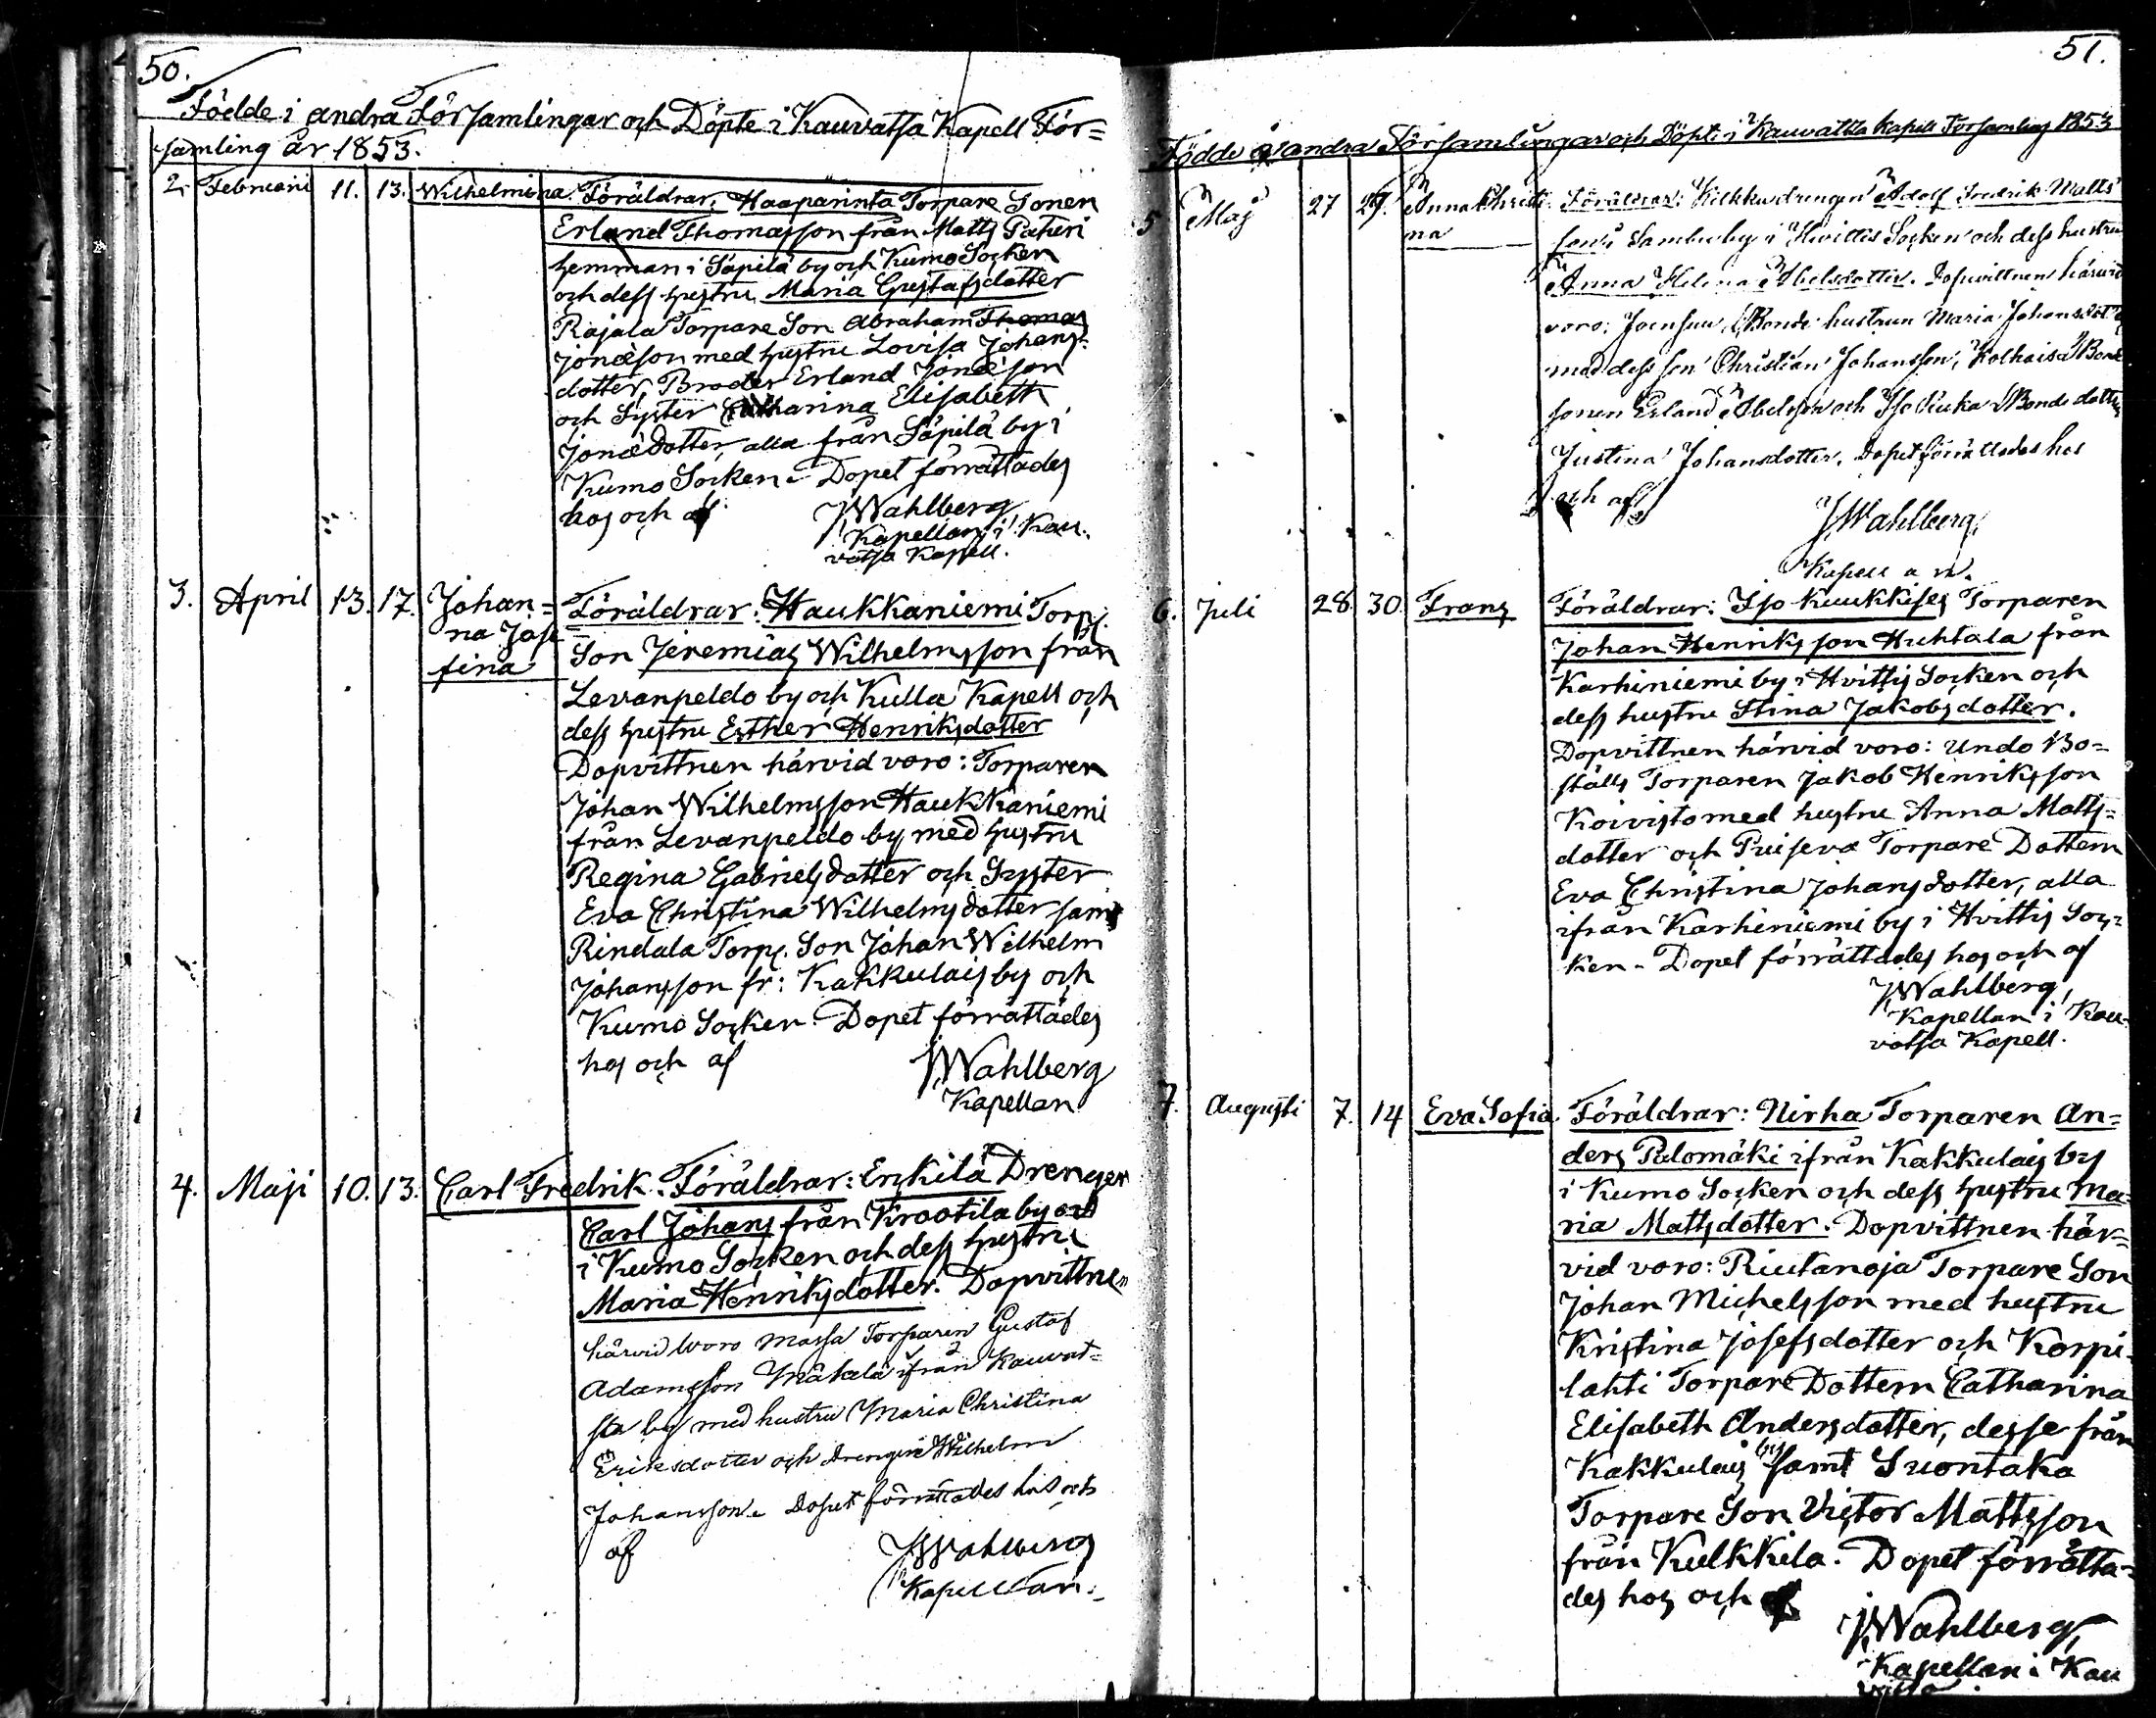 50.
Födde i andra Församlingar och Döpte i Kauvatsa Kapell För=
samling år 1853.
2. Februari 11. 13. Wilhelmina. Föräldrar: Haaparinta Torpare Sonen
Erland Thomasson från Matts Pateri
hemman i Säpilä by och Kumo Socken
och dess hustru Maria Gustafsdotter
Rajala Torpare Son Abraham Thomas
Jonæson med hustru Lovisa Johans=
dotter, Broder Erland Jonæson
och Syster Catharina Elisabeth
Jonædotter, alla från Säpilä by i
Kumo Socken. Dopet förrättades
hos och af
JWahlberg
Kapellan i Kau=
vatsa Kapell.
3. April 13. 17. Johan=
na Jose
fina
Föräldrar: Haukkaniemi Torp.
Son Jeremias Wilhelmsson från
Levanpeldo by och Kulla Kapell och
dess hustru Esther Henriksdotter
Dopvittnen härvid voro: Torparen
Johan Wilhelmsson Haukkaniemi
från Levanpeldo by med hustru
Regina Gabrielsdotter och Syster
Eva Christina Wilhelmsdotter samt
Rindala Torp. Son Johan Wilhelm
Johansson fr: Kakkulais by och
Kumo Socken. Dopet förrättades
hos och af
JWahlberg
Kapellan
4. Maji 10. 13. Carl Fredrik. Föräldrar: Erkilä Drengen
Carl Johans från Krootila by och
i Kumo Socken och dess hustru
Maria Henriksdotter. Dopvittnen
härvid woro Massa Torparen Gustaf
Adamsson Mäkelä ifrån Kauvat=
sta by med hustru Maria Christina
Eriksdotter och drengen Wilhelm
Johansson. Dopet förrättades hos och
af
JWahlberg
Kapellan.
51.
Födde i andra Församlingar och Döpte i Kauvatsa Kapell Församling 1853
5 Maj 27 29. Anna Christi
na
Föräldrar: Kilkku drengen Adolf Fredrik Matts
son i Sambu by i Hvittis Socken och dess hustru
Anna Helena Abelsdotter. Dopvittnen härwid
voro: Joensuu Bonde hustrun Maria Johansdotter
med dess son Christian Johansson, Kolhaisa Bonde
sonen Erland Abelsson och Iso Bonde dotter
Justina Johansdotter. Dopet förrättades hos
och af
JWahlberg,
Kapellan.
6. Juli 28. 30. Frans
Föräldrar: Iso Kuukkises Torparen
Johan Henriksson Huhtala från
Karhiniemi by i Hvittis Socken och
dess hustru Stina Jakobsdotter.
Dopvittnen härvid voro: Undo Bo=
ställs Torparen Jakob Henriksson
Koivisto med hustru Anna Matts=
dotter och Puiseva Torpare Dottern
Eva Christina Johansdotter, alla
ifrån Karhiniemi by i Hvittis Soc=
ken. Dopet förrättades hos och af
JWahlberg,
Kapellan i Kau=
vatsa Kapell.
7. Augusti 7. 14 Eva Sofia. Föräldrar: Nirha Torparen An=
ders Palomäki ifrån Kakkulais by
i Kumo Socken och dess hustru Ma=
ria Mattsdotter. Dopvittnen här=
vid voro: Riutanoja Torpare Son
Johan Michelsson med hustru
Kristina Josefsdotter och Korpi=
lahti Torpare Dottern Catharina
Elisabeth Andersdotter, desse från
Kakkulais by samt Suontaka
Torpare Son Victor Mattsson
från Kulkkila. Dopet förrätta=
des hos och af
JWahlberg,
Kapellan i Kau
vatsa.